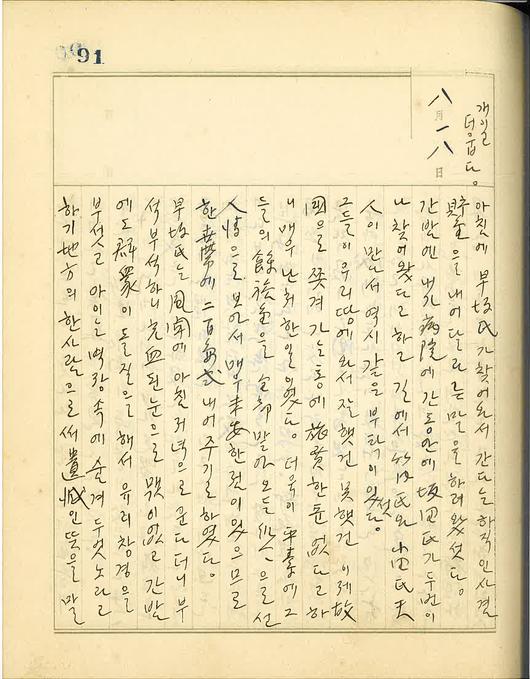 91
八月一八日
개임
더웁다。
아침에 早坂氏가 찾어와서 간다는 하직인사겸
貯金을 내어달라는 말을 하려 왔섯다。
간밤엔 내가 病院에 간동안에 坂田氏가 두번이
나 찾어왔다고 하고 길에서 竹氏와 內田氏夫
人이 만나서 역시 같은 부탁이 있섯다。
그들이 우리땅에와서 잘했건 못했건 이제 故
國으로 쫓겨 가는통에 旅費한푼없다고 하
니 매우 난처한일이였다。 더욱이 平素에 그
들의 餘裕金을 全部 맡아오든 나으로선
人情으로 보아서 매우 未安한점이 있으므로
한 에 二百 式 내어주기로 하였다。
早坂氏는 風聞에 아침저녁으로 군다더니 부
석부석하니 充血된눈으로 맺이없고 간밤
에도 群衆이 돌질을 해서 유리창경을
부섯고 아이는 벽장속에 숨겨두었노라고
하기 地方의 한사람으로써 遺憾인뜻을 말